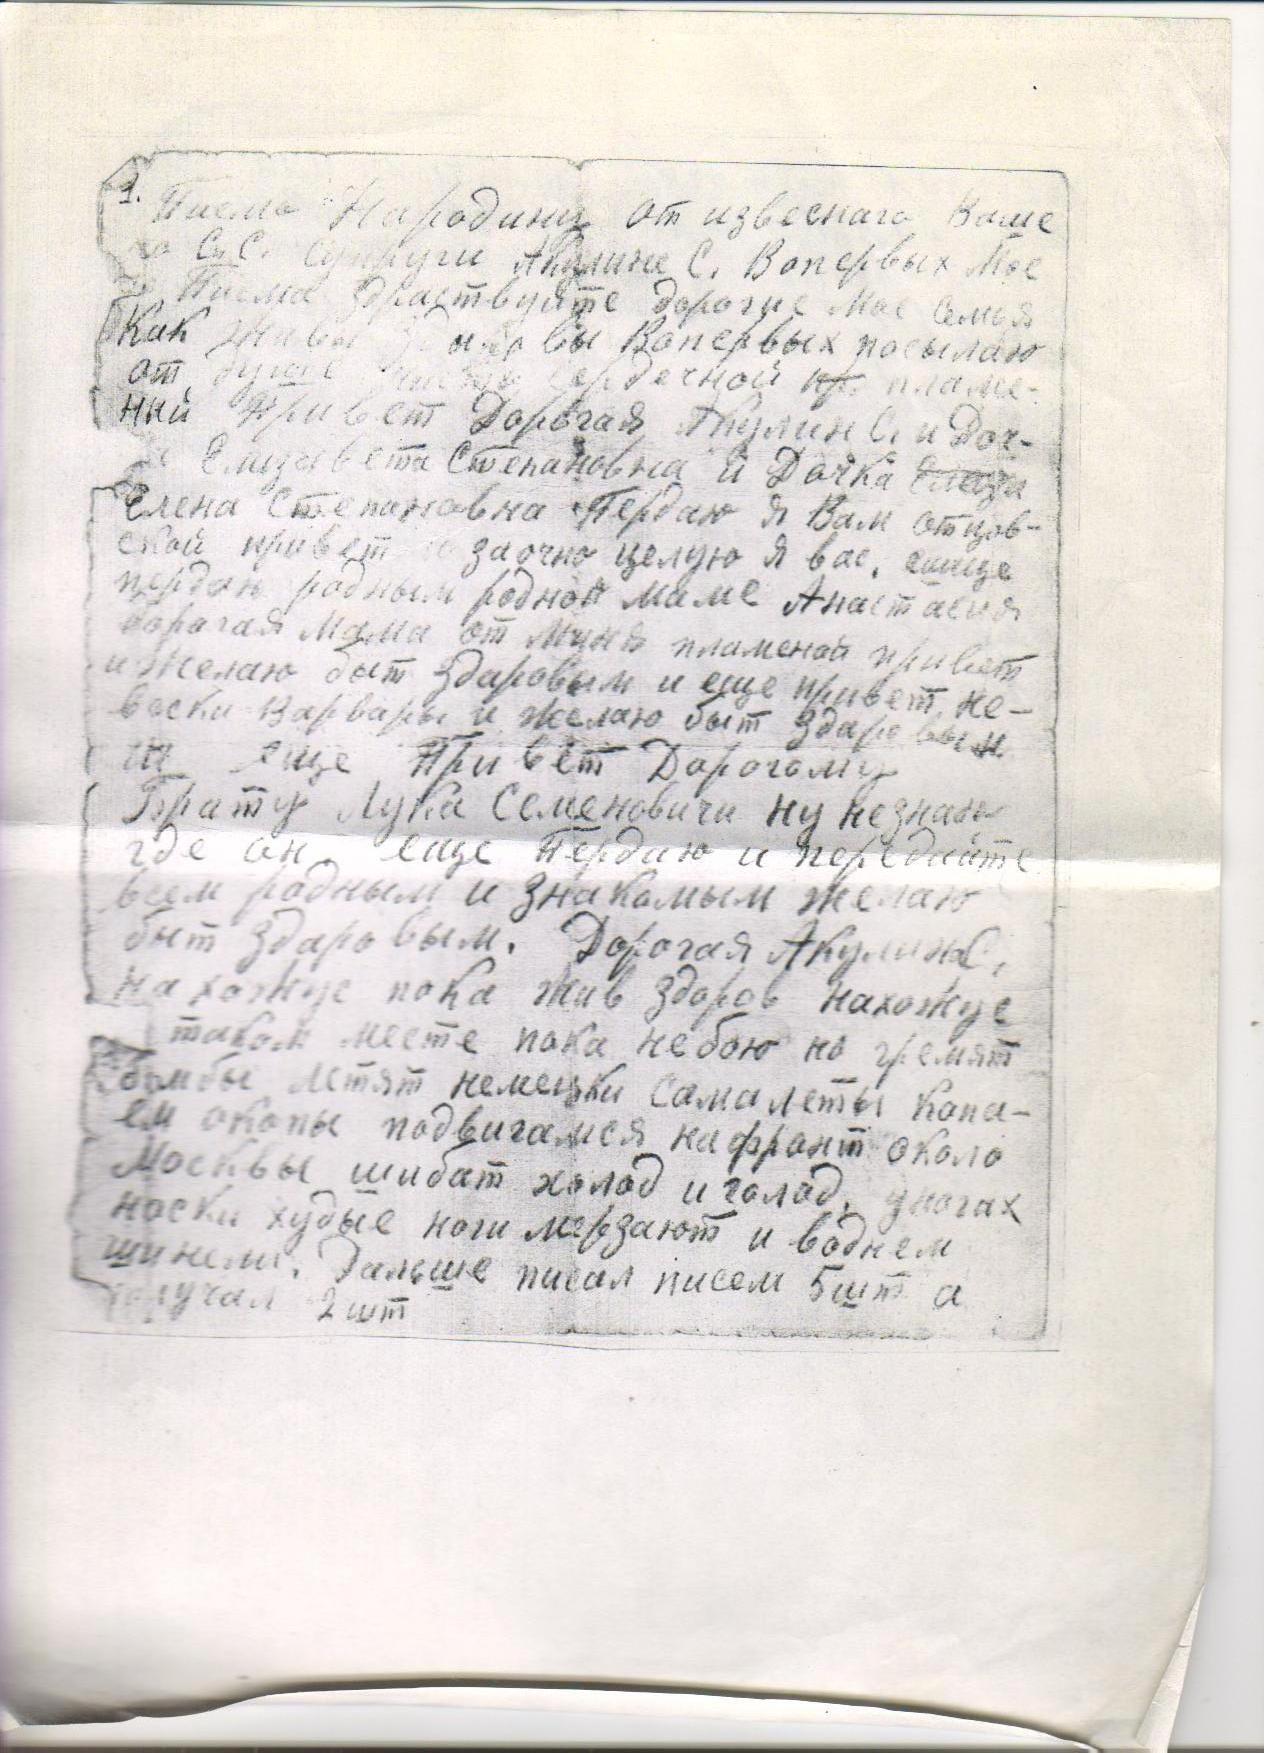 1. Писмо Народину от извеснаго Ваше
го С. С. Супруги Акулине С. Вопервых Мое
Писма Здраствуйте дорогие Мое семья
Как живы Здоровы Вопервых посылаю
от души сердечной пламе-
ный Привет Дорогая Акулин С. и Доч-
Елизивета Степановна и Дочка
Елена Степановна Пердаю я Вам отцов-
ской привет заочно целую я вас. еще
пердаю родным родной маме Анастасия
дорогая Мама от миня пламеной привет
и желаю быт здаровым и еще привет не-
вески Варвары и желаю быт здаровым
еще Привет Дорогому
Брату Лука Семеновичи ну незнаю
где он. еще Пердаю и передайте
всем родным и знакомым желаю
быт здаровым. Дорогая Акулин С.
нахожус пока жив здоров нахожус
таком месте пока небою но гремят
бомбы летят немецки самалеты копа-
ем окопы подвигамся на фронт около
Москвы шибат холод и голод. уногах
носки худые ноги мерзают и воднем
шинели. Дальше писал писем 5шт а
получал 2шт